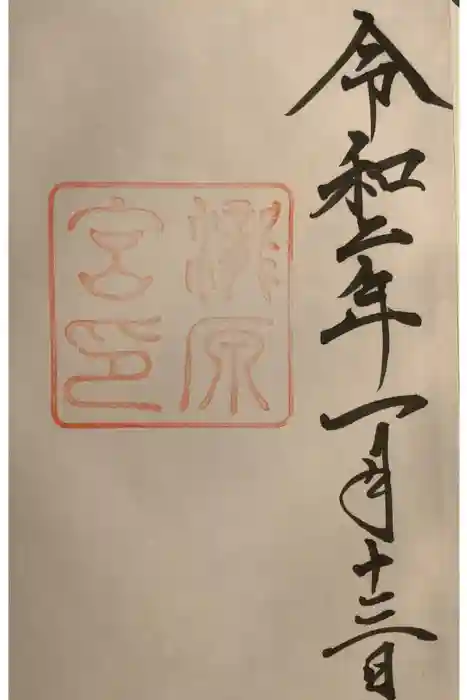 令和二年一月十三日
原
宮印